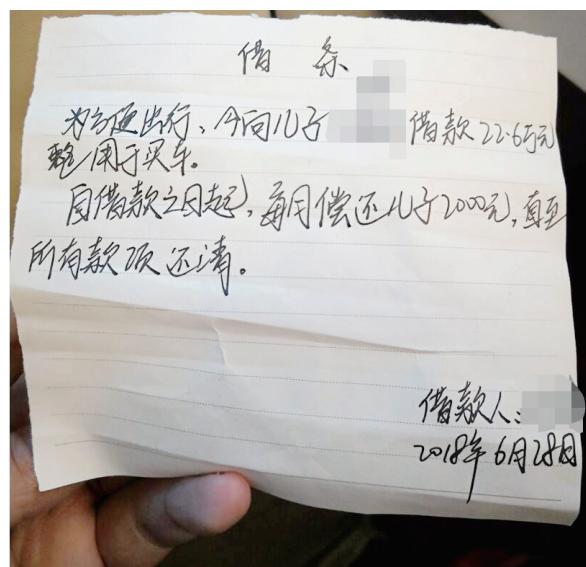 借条
为方便出行，今向儿子借款22.6万元
整用于买车。
自借款之日起，每月偿还儿子2000元，直至
所有款项还清。
借款人：
2018年6月28日